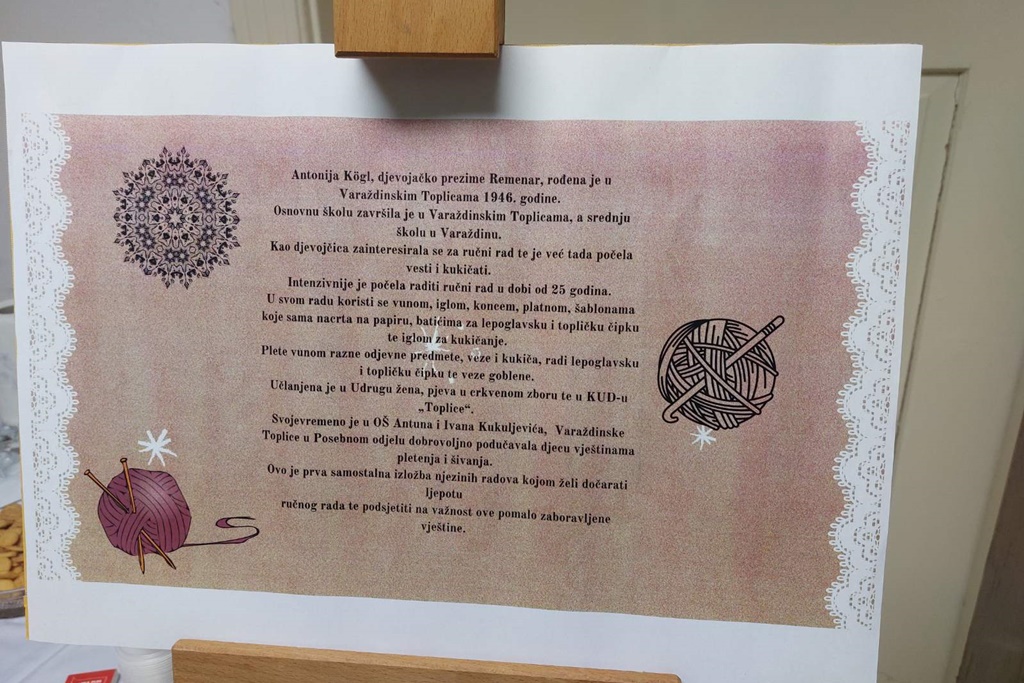 Antonija Kögl, djevojačko prezime Remenar, rođena je u
Varaždinskim Toplicama 1946. godine.
Osnovnu školu završila je u Varaždinskim Toplicama, a srednju
školu u Varaždinu.
Kao djevojčica zainteresirala se za ručni rad te je već tada počela
vesti i kukičati.
Intenzivnije je počela raditi ručni rad u dobi od 25 godina.
U svom radu koristi se vunom, iglom, koncem, platnom, šablonama
koje sama nacrta na papiru, batićima za lepoglavsku i topličku čipku
te iglom za kukičanje.
Plete vunom razne odjevne predmete, veze i kukiča, radi lepoglavsku
i topličku čipku te veze goblene.
Učlanjena je u Udrugu žena, pjeva u crkvenom zboru te u KUD-u
„Toplice“.
Svojevremeno je u OŠ Antuna i Ivana Kukuljevića, Varaždinske
Toplice u Posebnom odjelu dobrovoljno podučavala djecu vještinama
pletenja i šivanja.
Ovo je prva samostalna izložba njezinih radova kojom želi dočarati
ljepotu
ručnog rada te podsjetiti na važnost ove pomalo zaboravljene
vještine.